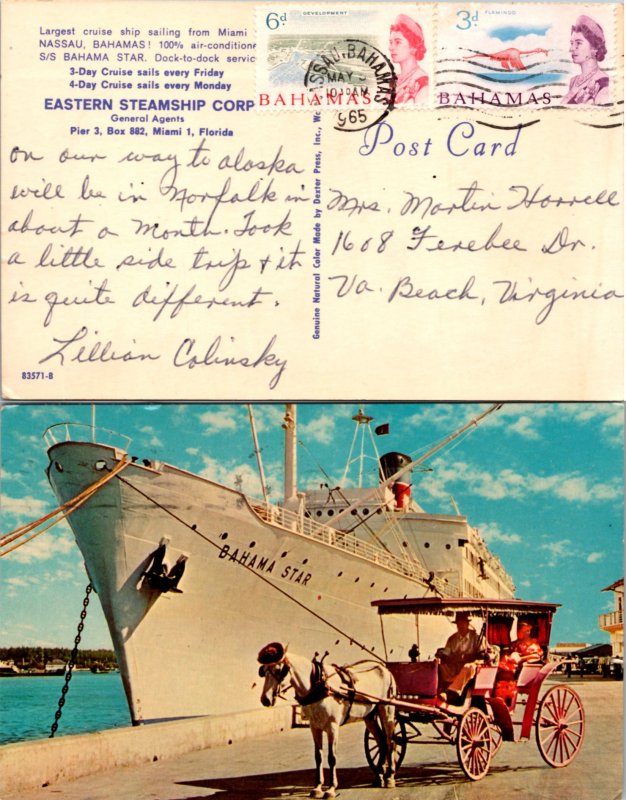 Largest cruise ship sailing from Miami
NASSAU, BAHAMAS! 100% air-conditione
S/S BAHAMA STAR. Dock-to-dock servic
3-Day Cruise sails every Friday
4-Day Cruise sails every Monday
EASTERN STEAMSHIP CORP
General Agents
Pier 3, Box 882, Miami 1, Florida
6d
DEVELOPMENT
BAHAMAS
3d
FLAMINGO
BAHAMAS
NASSAU, BAHAMAS
MAY
1030AM
965
Post Card
on our way to alaska
will be in Norfalk in
about a month. Took
a little side trip & it
is quite different.
Lillian Colinsky
83571-B
Genuine Natural Color Made by Dexter Press, Inc., W
Mrs. Martin Harrell
1608 Ferebee Dr.
Va. Beach, Virginia
BAHAMA STAR